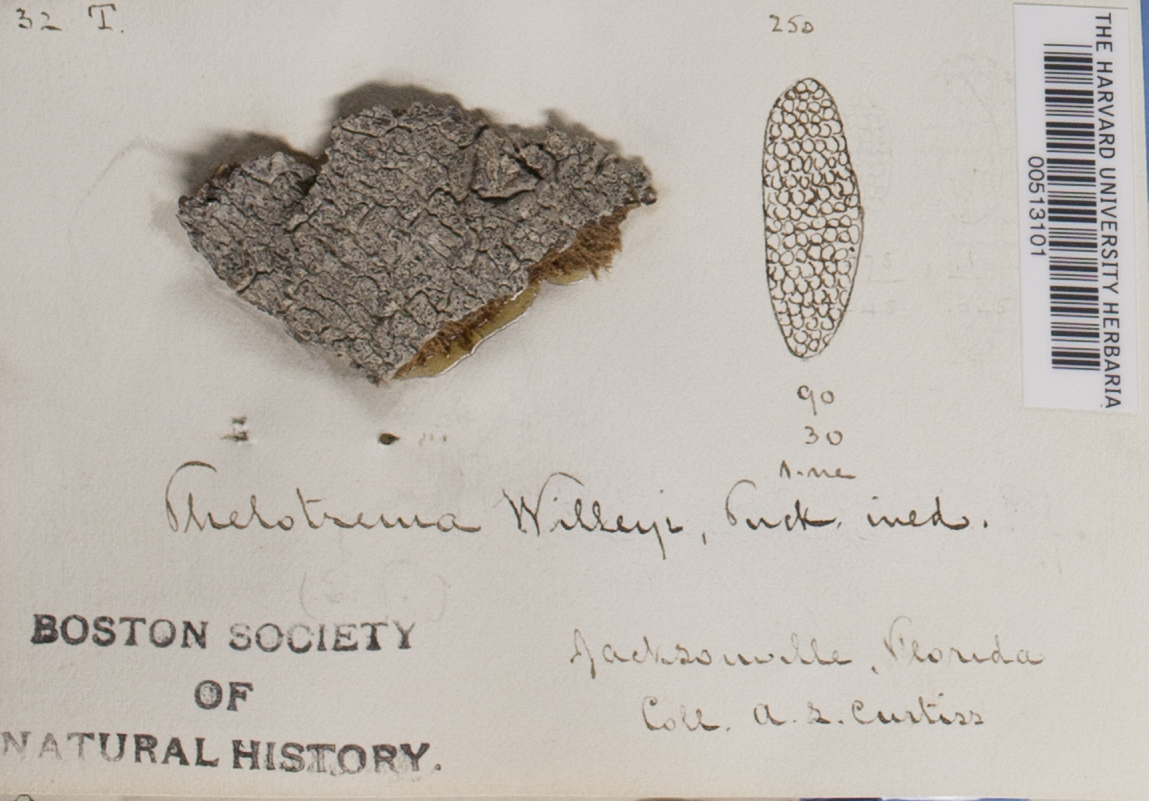 32 T.
250
THE HARVARD UNIVERSITY HERBARIA
00513101
90
30
Thelotrema Willeyi, Tuck. ined.
BOSTON SOCIETY
OF
NATURAL HISTORY.
Jacksonville, Florida
Coll. A. H. Curtiss